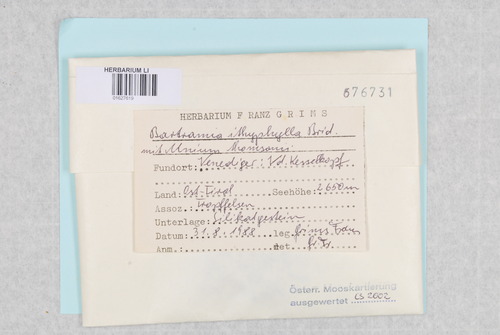 HERBARIUM LI
676731
HERBARIUM FRANZ GRIMS
Bartramia ithyphylla Brid.
mit Mnium thomsonii
Fundort: Venediger: Vd. Kesselkopf
Land: Ost-Tirol Seehöhe: 2650m
Assoz.: Tropffelsen
Unterlage: Silikatgestein
Datum: 31.8.1988 leg. Grims Franz
Anm.: det.
Österr. Mooskartierung
ausgewertet CS 2002